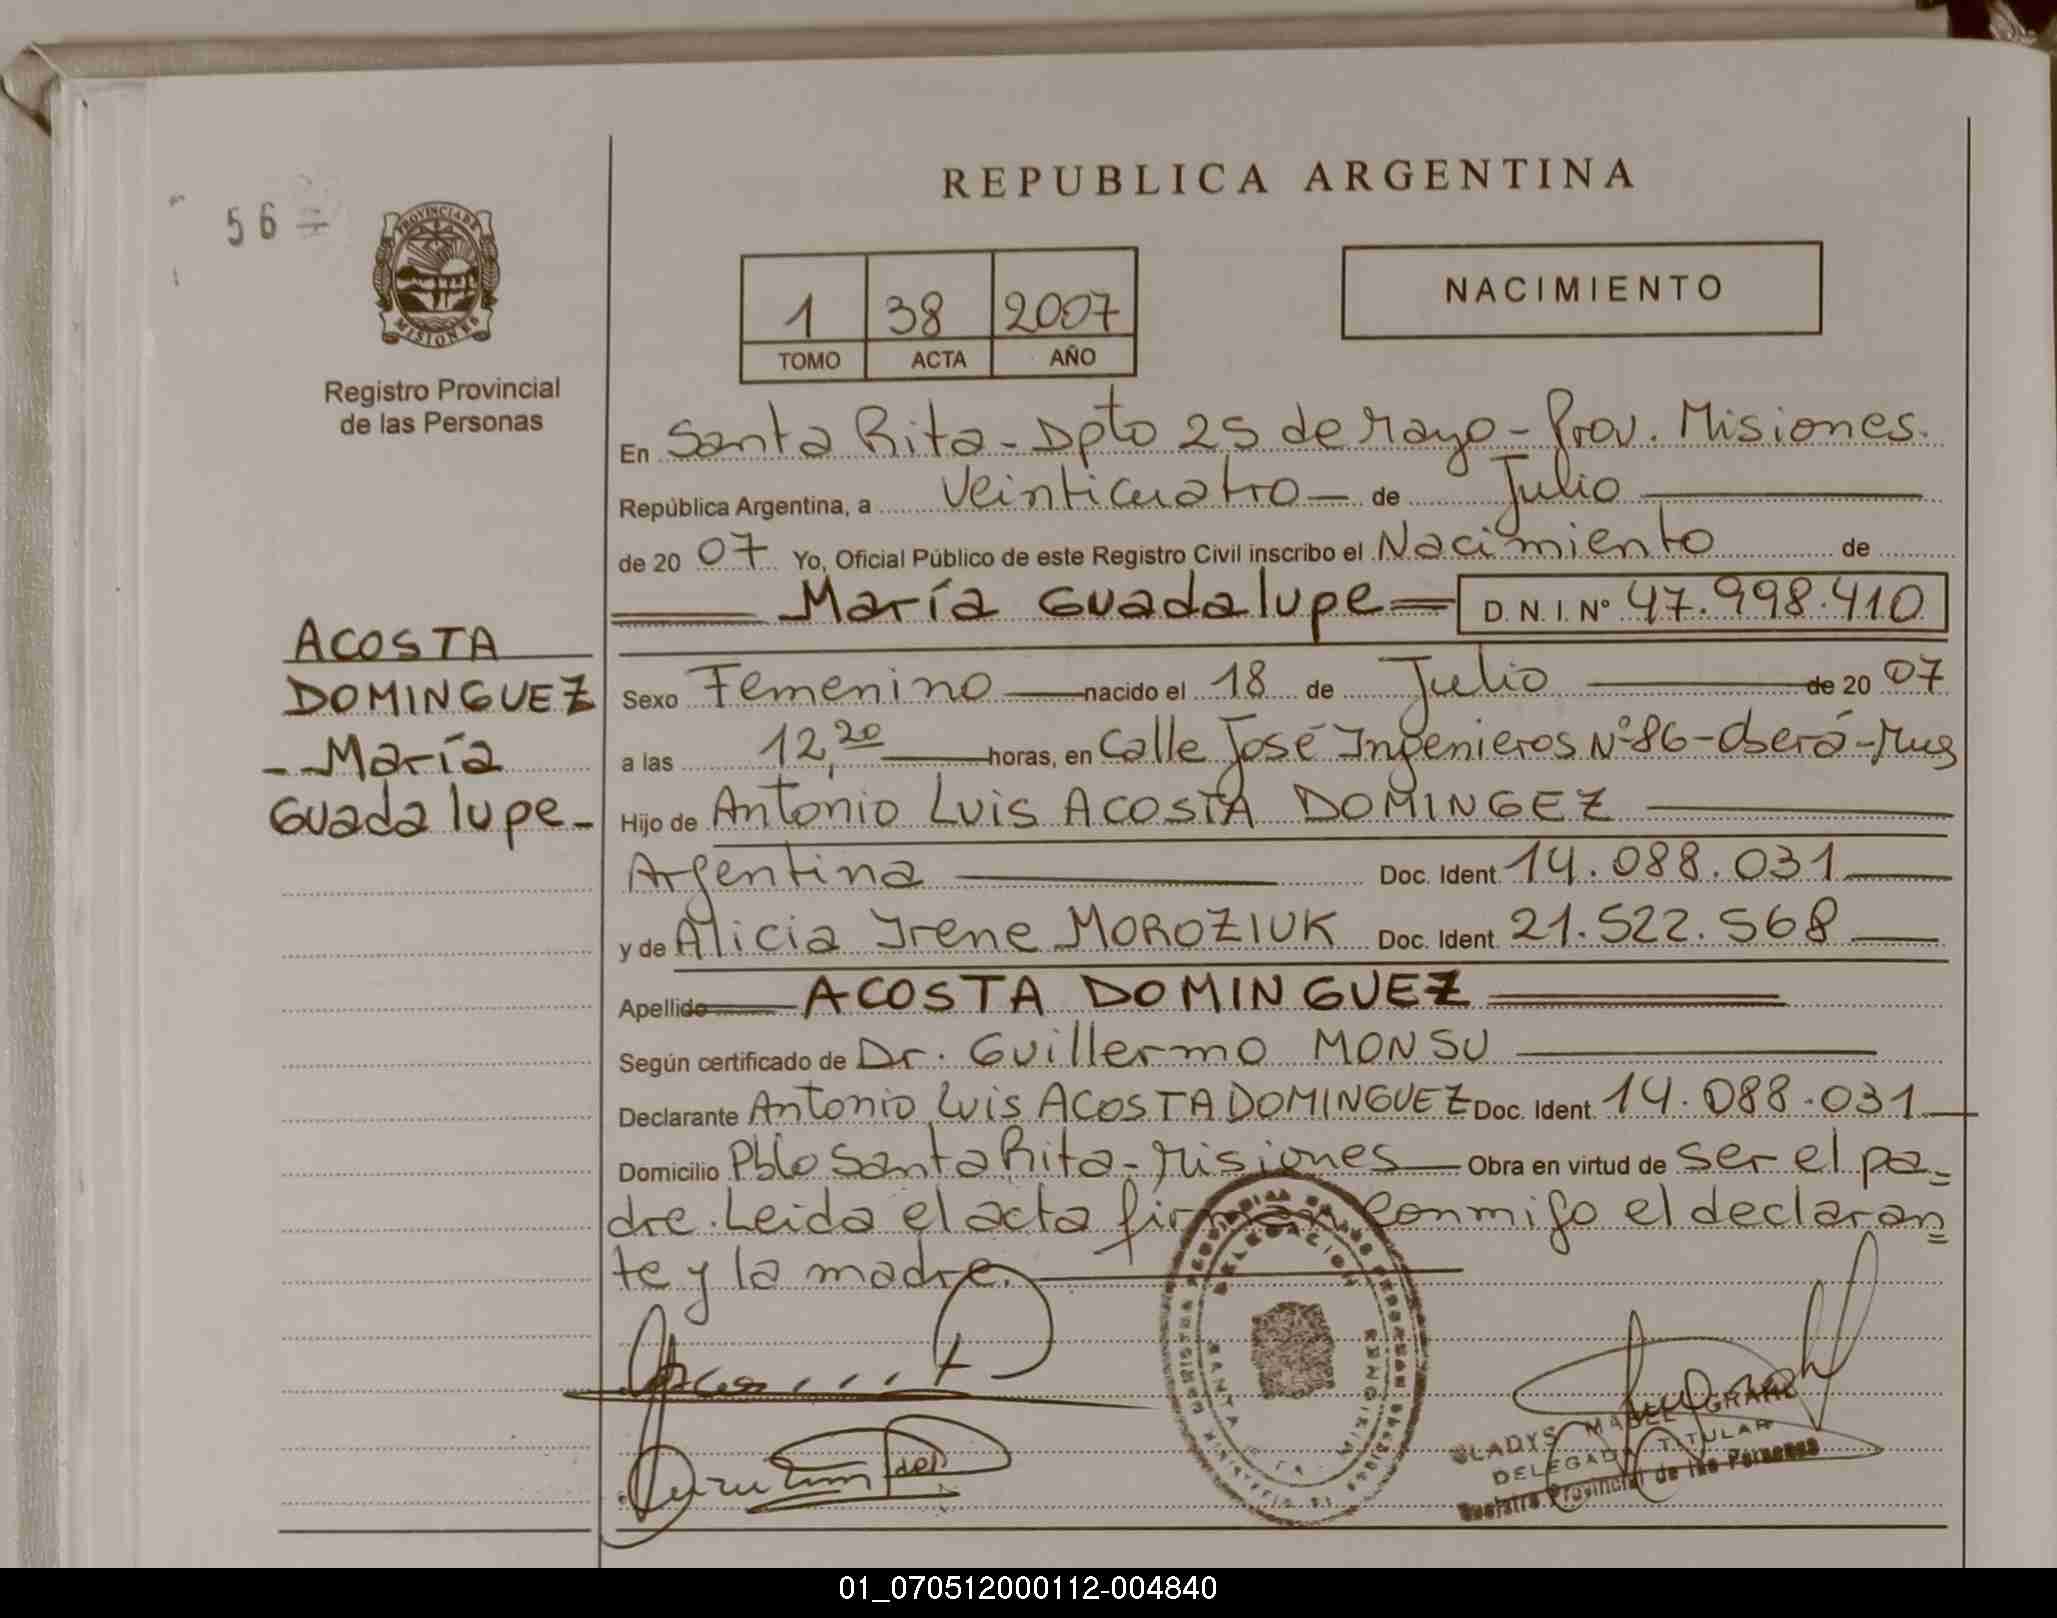 REPUBLICA ARGENTINA
56
PROVINCIA DE
MISIONES
Registro Provincial
de las Personas
1 38 2007
TOMO ACTA AÑO
NACIMIENTO
En Santa Rita - Dpto 25 de Mayo - Prov. Misiones.
República Argentina, a Veinticuatro de Julio
de 20 07 Yo, Oficial Público de este Registro Civil inscribo el Nacimiento de
María Guadalupe D. N. I. Nº 47.998.410
ACOSTA
DOMINGUEZ
- María
Guadalupe -
Sexo Femenino nacido el 18 de Julio de 20 07
a las 12,20 horas, en Calle José Ingenieros Nº 86 - Oberá - Mnes
Hijo de Antonio Luis ACOSTA DOMINGEZ
Argentina Doc. Ident. 14.088.031
y de Alicia Irene MOROZIUK Doc. Ident. 21.522.568
Apellido ACOSTA DOMINGUEZ
Según certificado de Dr. Guillermo MONSU
Declarante Antonio Luis ACOSTA DOMINGUEZ Doc. Ident. 14.088.031
Domicilio Pblo Santa Rita - Misiones Obra en virtud de ser el pa=
dre. Leida el acta firman conmigo el declaran=
te y la madre.
DELEGACION
SANTA
GLADYS MABEL GRAHL
DELEGADA TITULAR
Registro Provincial de las Personas
01_070512000112-004840